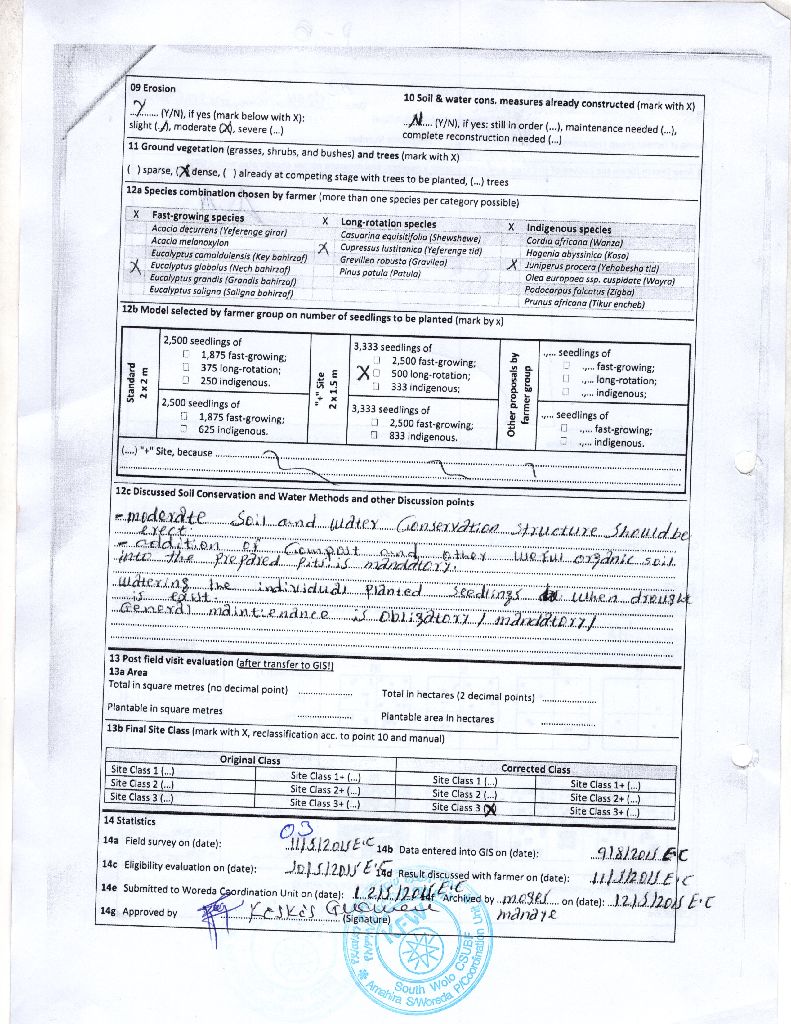 09 Erosion
Y (Y/N), if yes (mark below with X):
slight (.), moderate (X), severe (...)
10 Soil & water cons. measures already constructed (mark with X)
N (Y/N), if yes: still in order (...), maintenance needed (...),
complete reconstruction needed (...)
11 Ground vegetation (grasses, shrubs, and bushes) and trees (mark with X)
( ) sparse, (X) dense, ( ) already at competing stage with trees to be planted, (...) trees
12a Species combination chosen by farmer (more than one species per category possible)
X Fast-growing species
Acacia decurrens (Yeferenge girar)
Acacia melanoxylon
Eucalyptus camaldulensis (Key bahirzaf)
X Eucalyptus globolus (Nech bahirzaf)
Eucalyptus grandis (Grandis bahirzaf)
Eucalyptus saligna (Saligna bahirzof)
X Long-rotation species
Casuarina equisitifolia (Shewshewe)
X Cupressus lustitanica (Yeferenge tid)
Grevillea robusta (Gravilea)
Pinus patula (Patula)
X Indigenous species
Cordia africana (Wanza)
Hagenia abyssinica (Koso)
X Juniperus procera (Yehabesha tid)
Olea europaea ssp. cuspidate (Wayra)
Podocarpus falcatus (Zigba)
Prunus africana (Tikur encheb)
12b Model selected by farmer group on number of seedlings to be planted (mark by x)
Standard
2 x 2 m
2,500 seedlings of
1,875 fast-growing;
375 long-rotation;
250 indigenous.
2,500 seedlings of
1,875 fast-growing;
625 indigenous.
"+" Site
2 x 1.5 m
3,333 seedlings of
2,500 fast-growing;
X 500 long-rotation;
333 indigenous;
3,333 seedlings of
2,500 fast-growing;
833 indigenous.
Other proposals by
farmer group
.,... seedlings of
.,... fast-growing;
.,... long-rotation;
.,... indigenous;
.,... seedlings of
.,... fast-growing;
.,... indigenous.
(....) "+" Site, because
12c Discussed Soil Conservation and Water Methods and other Discussion points
- moderate Soil and water Conservation structure should be
erect.
- addition of Compost and other useful organic soil
into the prepared pits is mandatory.
watering the individual planted seedlings when drought
is exist.
General maintienance is obligatory / mandatory/
13 Post field visit evaluation (after transfer to GIS!)
13a Area
Total in square metres (no decimal point) ..................
Total in hectares (2 decimal points) ..................
Plantable in square metres ..................
Plantable area in hectares ..................
13b Final Site Class (mark with X, reclassification acc. to point 10 and manual)
Original Class
Corrected Class
Site Class 1 (...) Site Class 1+ (...) Site Class 1 (...) Site Class 1+ (...)
Site Class 2 (...) Site Class 2+ (...) Site Class 2 (...) Site Class 2+ (...)
Site Class 3 (...) Site Class 3+ (...) Site Class 3 (X) Site Class 3+ (...)
14 Statistics
03
14a Field survey on (date): 11/5/2015 E.C
14b Data entered into GIS on (date): 9/8/2015 E.C
14c Eligibility evaluation on (date): 10/5/2015 E.C
14d Result discussed with farmer on (date): 11/5/2015 E.C
14e Submitted to Woreda Coordination Unit on (date): 12/5/2015 E.C
14f Archived by moges manaye on (date): 12/5/2015 E.C
14g Approved by
(Signature)
South Wolo CSUBF
Amahira S/Woreda P/Coordination Unit